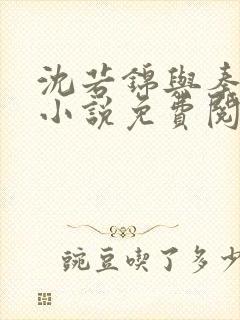 沈若錦與秦
小說免費閱
豌豆喫了多少